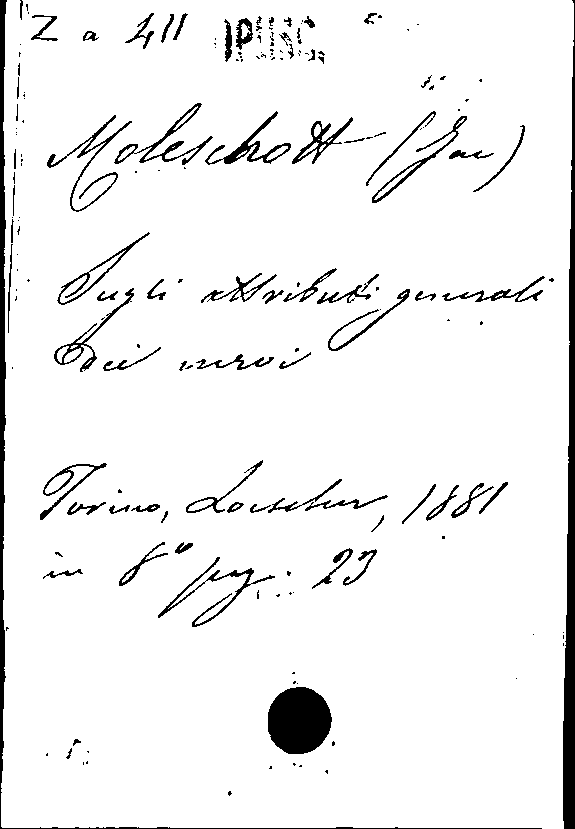 Z a 411 OPUSC.
Moleschott (Jac)
Sugli attributi generali
dei nervi
Torino, Loescher, 1881
in 8° pag. 23